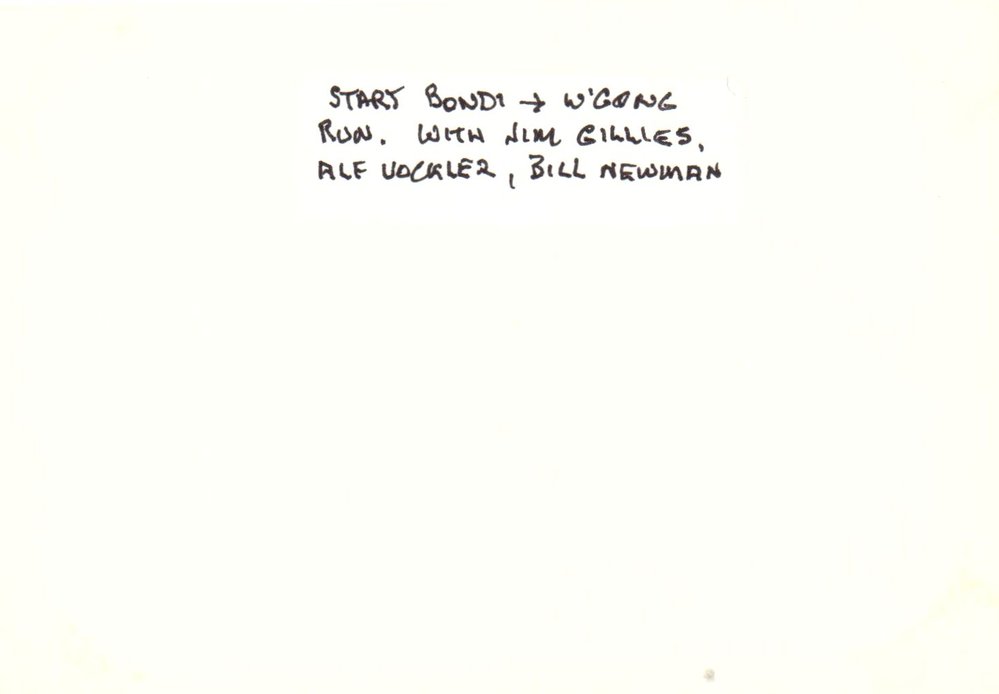 START BONDI → W'GONG
RUN. WITH JIM GILLIES,
ALF VOCKLER, BILL NEWMAN